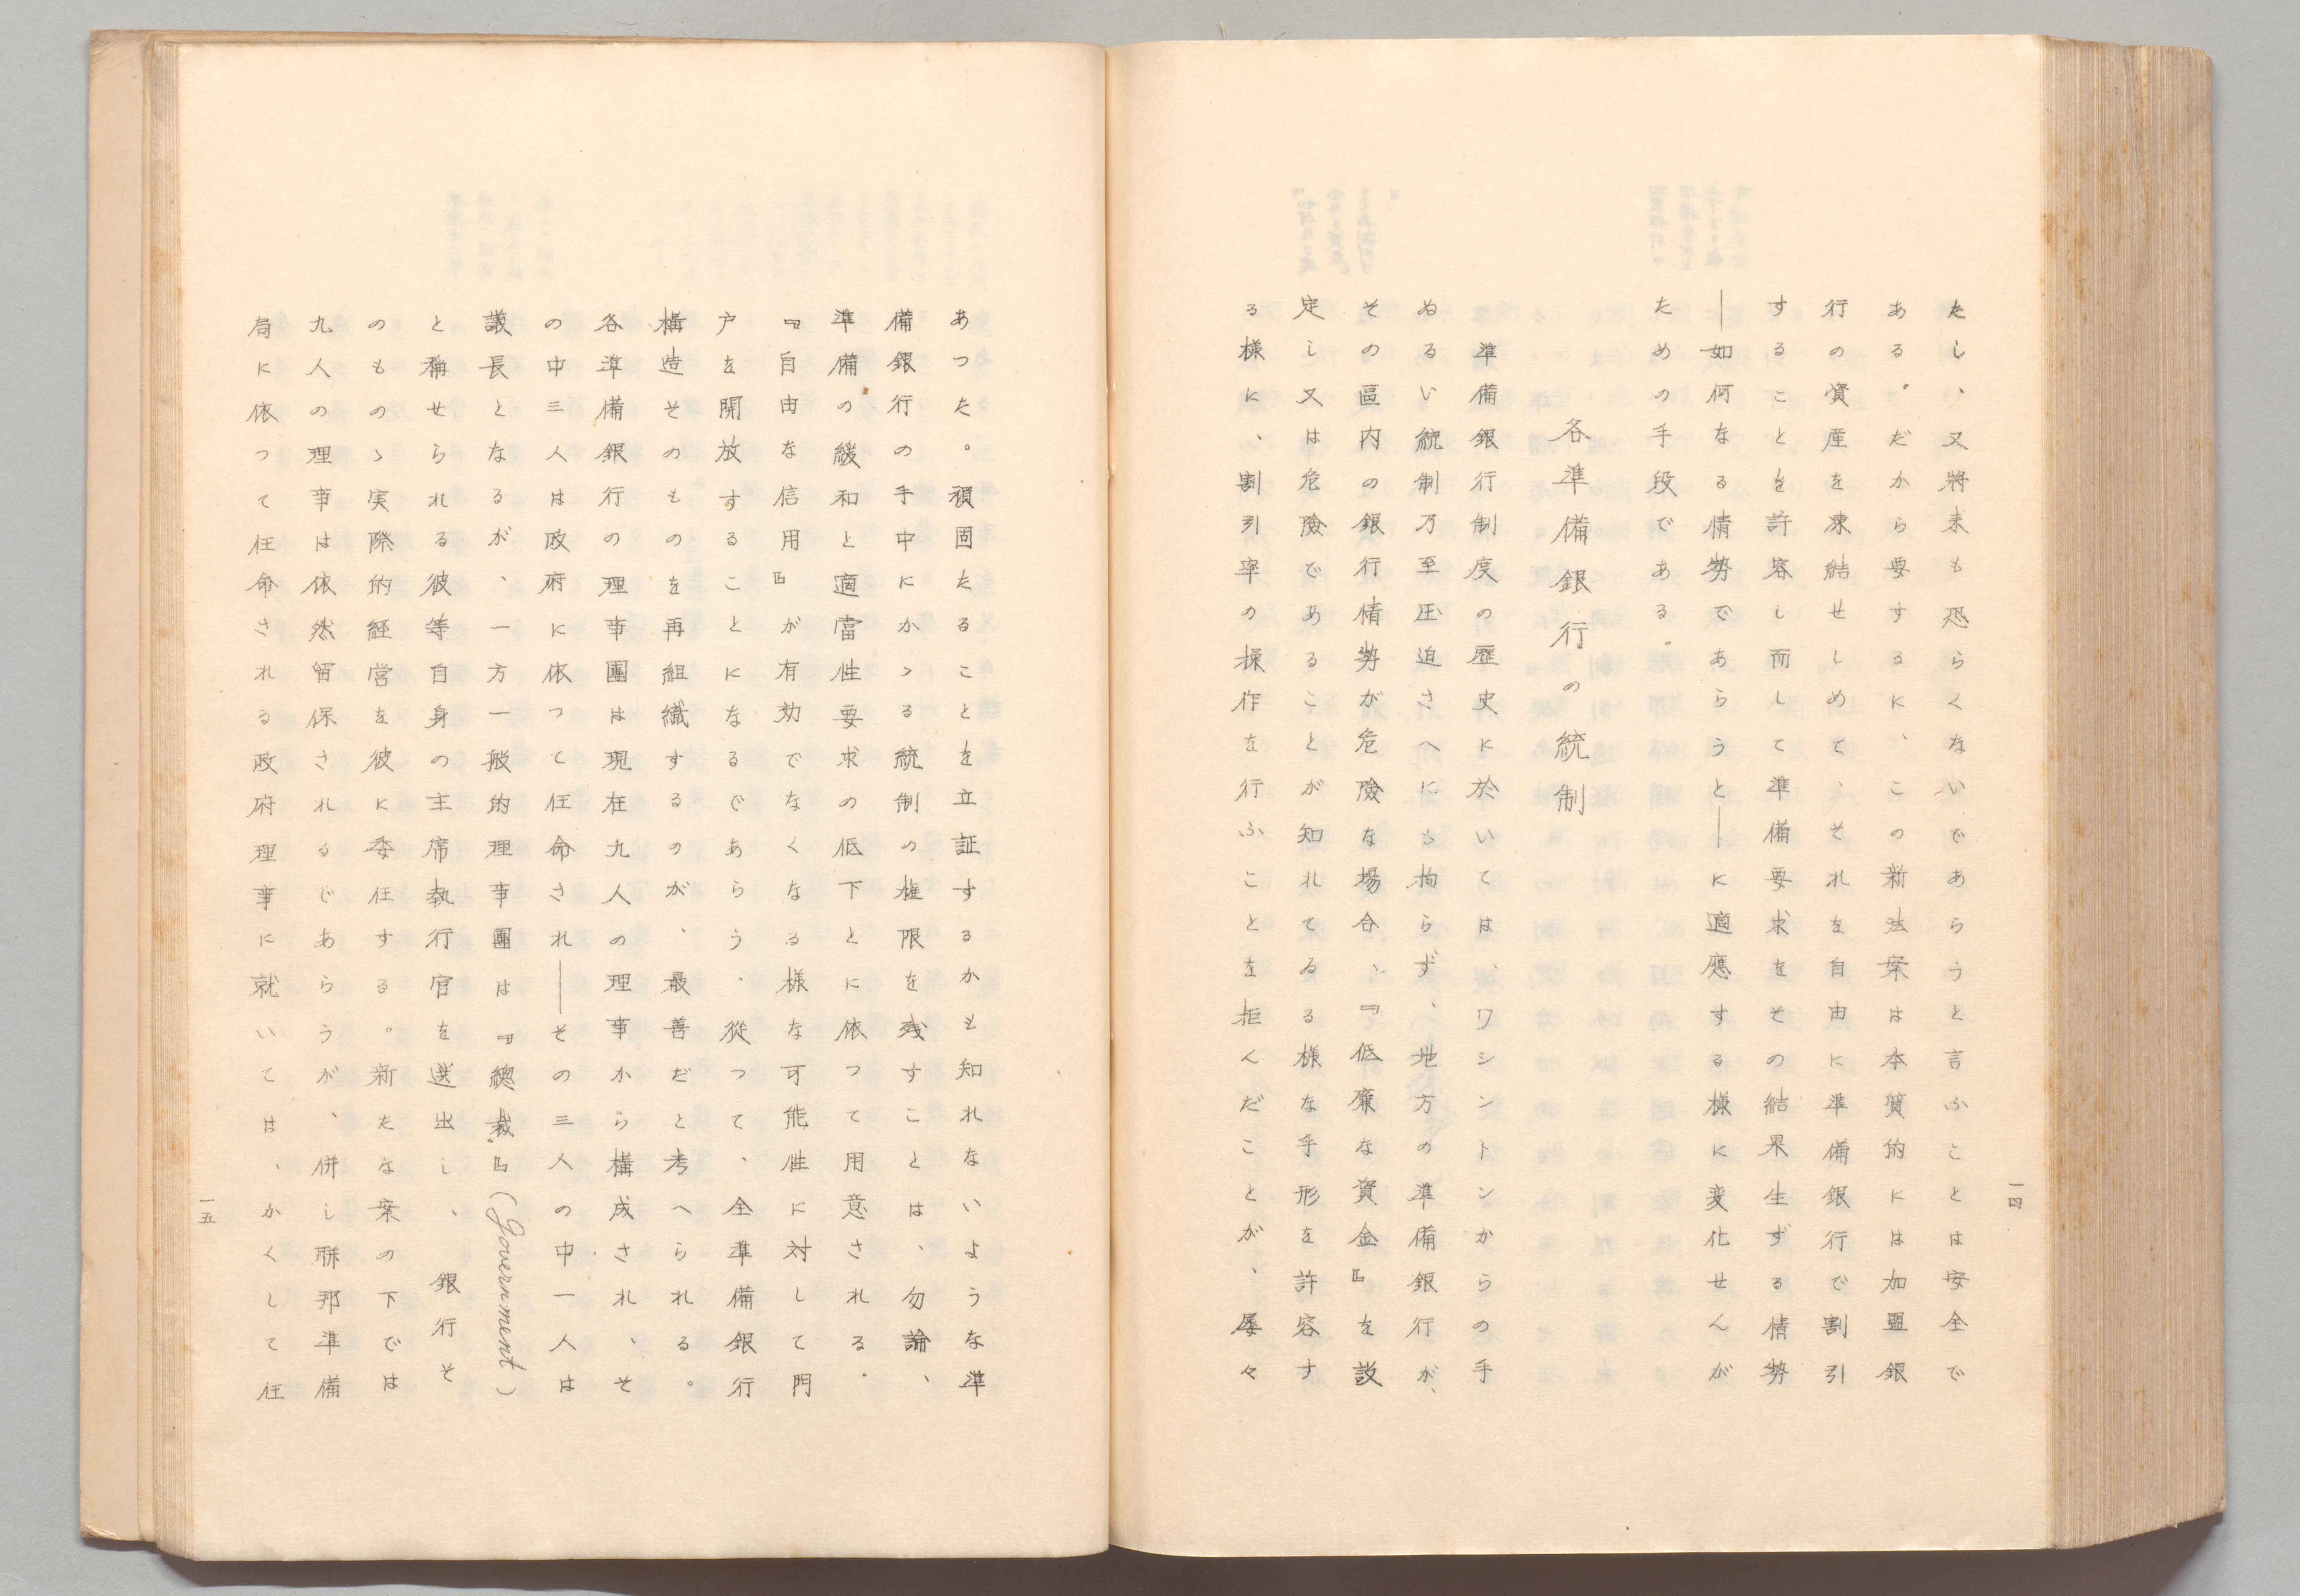 たし、又將来も恐らくないであらうと言ふことは安全で
ある。だから要するに、この新法案は本質的には加盟銀
行の資産を凍結せしめて、それを自由に準備銀行で割引
することを許容し而して準備要求をその結果生ずる情勢
――如何なる情勢であらうと――に適應する様に変化せんが
ための手段である。
各準備銀行の統制
準備銀行制度の歴史に於いては、ワシントンからの手
ぬるい統制乃至圧迫さへにも拘らず、地方の準備銀行が、
その區内の銀行情勢が危險な場合、『低廉な資金』を設
定し又は危險であることが知れてゐる様な手形を許容す
る様に、割引率の操作を行ふことを拒んだことが、屡々
一四
あつた。頑固たることを立証するかも知れないような準
備銀行の手中にかゝる統制の権限を残すことは、勿論、
準備の緩和と適當性要求の低下とに依つて用意される。
『自由な信用』が有効でなくなる様な可能性に対して門
户を開放することになるであらう、從つて、全準備銀行
構造そのものを再組織するのが、最善だと考へられる。
各準備銀行の理事團は現在九人の理事から構成され、そ
の中三人は政府に依つて任命され――その三人の中一人は
議長となるが、一方一般的理事團は『總裁』(Government)
と稱せられる彼等自身の主席執行官を選出し、銀行そ
のものゝ実際的経営を彼に委任する。新たな案の下では
九人の理事は依然留保されるであらうが、併し聯邦準備
局に依つて任命される政府理事に就いては、かくして任
一五